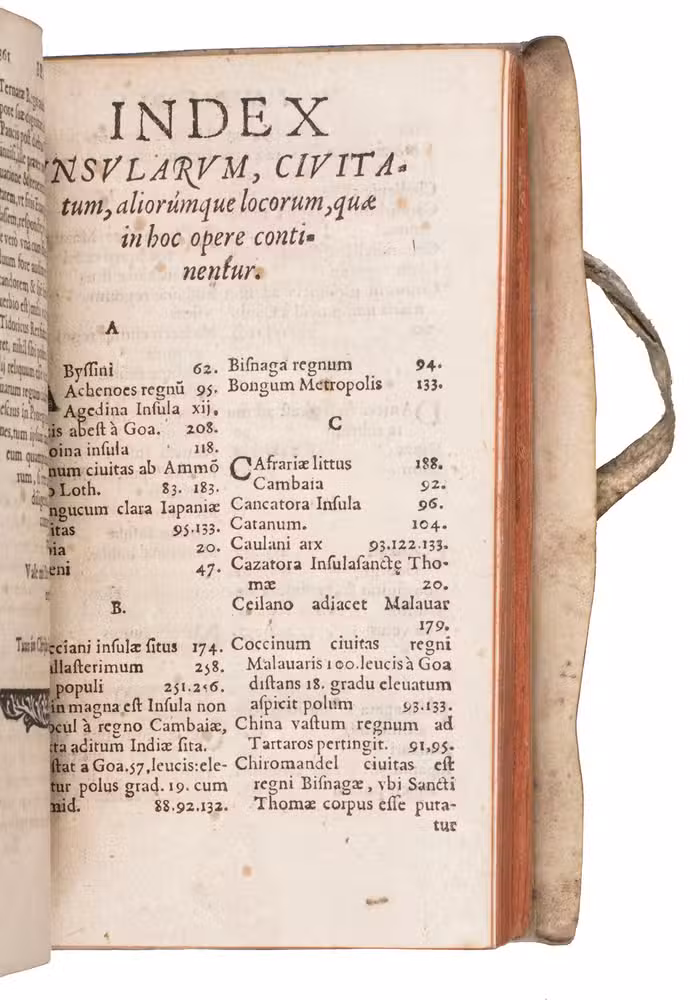 INDEX
NSVLARVM, CIVITA-
tum, aliorúmque locorum, quæ
in hoc opere conti-
nentur.
A
Byſſini 62.
Achenoes regnū 95.
Agedina Inſula xij.
is abeſt à Goa. 208.
oina inſula 118.
num ciuitas ab Ammō
Loth. 83. 183.
ngucum clara Iapaniæ
itas 95.133.
ia 20.
eni 47.
B.
cciani inſulæ ſitus 174.
llaſterimum 258.
populi 251.256.
in magna eſt Inſula non
ocul à regno Cambaiæ,
ta aditum Indiæ ſita.
ſtat a Goa.57,leucis:ele-
tur polus grad. 19. cum
mid. 88.92.132.
Biſnaga regnum 94.
Bongum Metropolis 133.
C
CAfrariæ littus 188.
Cambaia 92.
Cancatora Inſula 96.
Catanum. 104.
Caulani arx 93.122.133.
Cazatora Inſulaſanctę Tho-
mæ 20.
Ceilano adiacet Malauar
179.
Coccinum ciuitas regni
Malauaris 100.leucis à Goa
diſtans 18. gradu eleuatum
aſpicit polum 93.133.
China vaſtum regnum ad
Tartaros pertingit. 91,95.
Chiromandel ciuitas eſt
regni Biſnagæ, vbi Sancti
Thomæ corpus eſſe puta-
tur